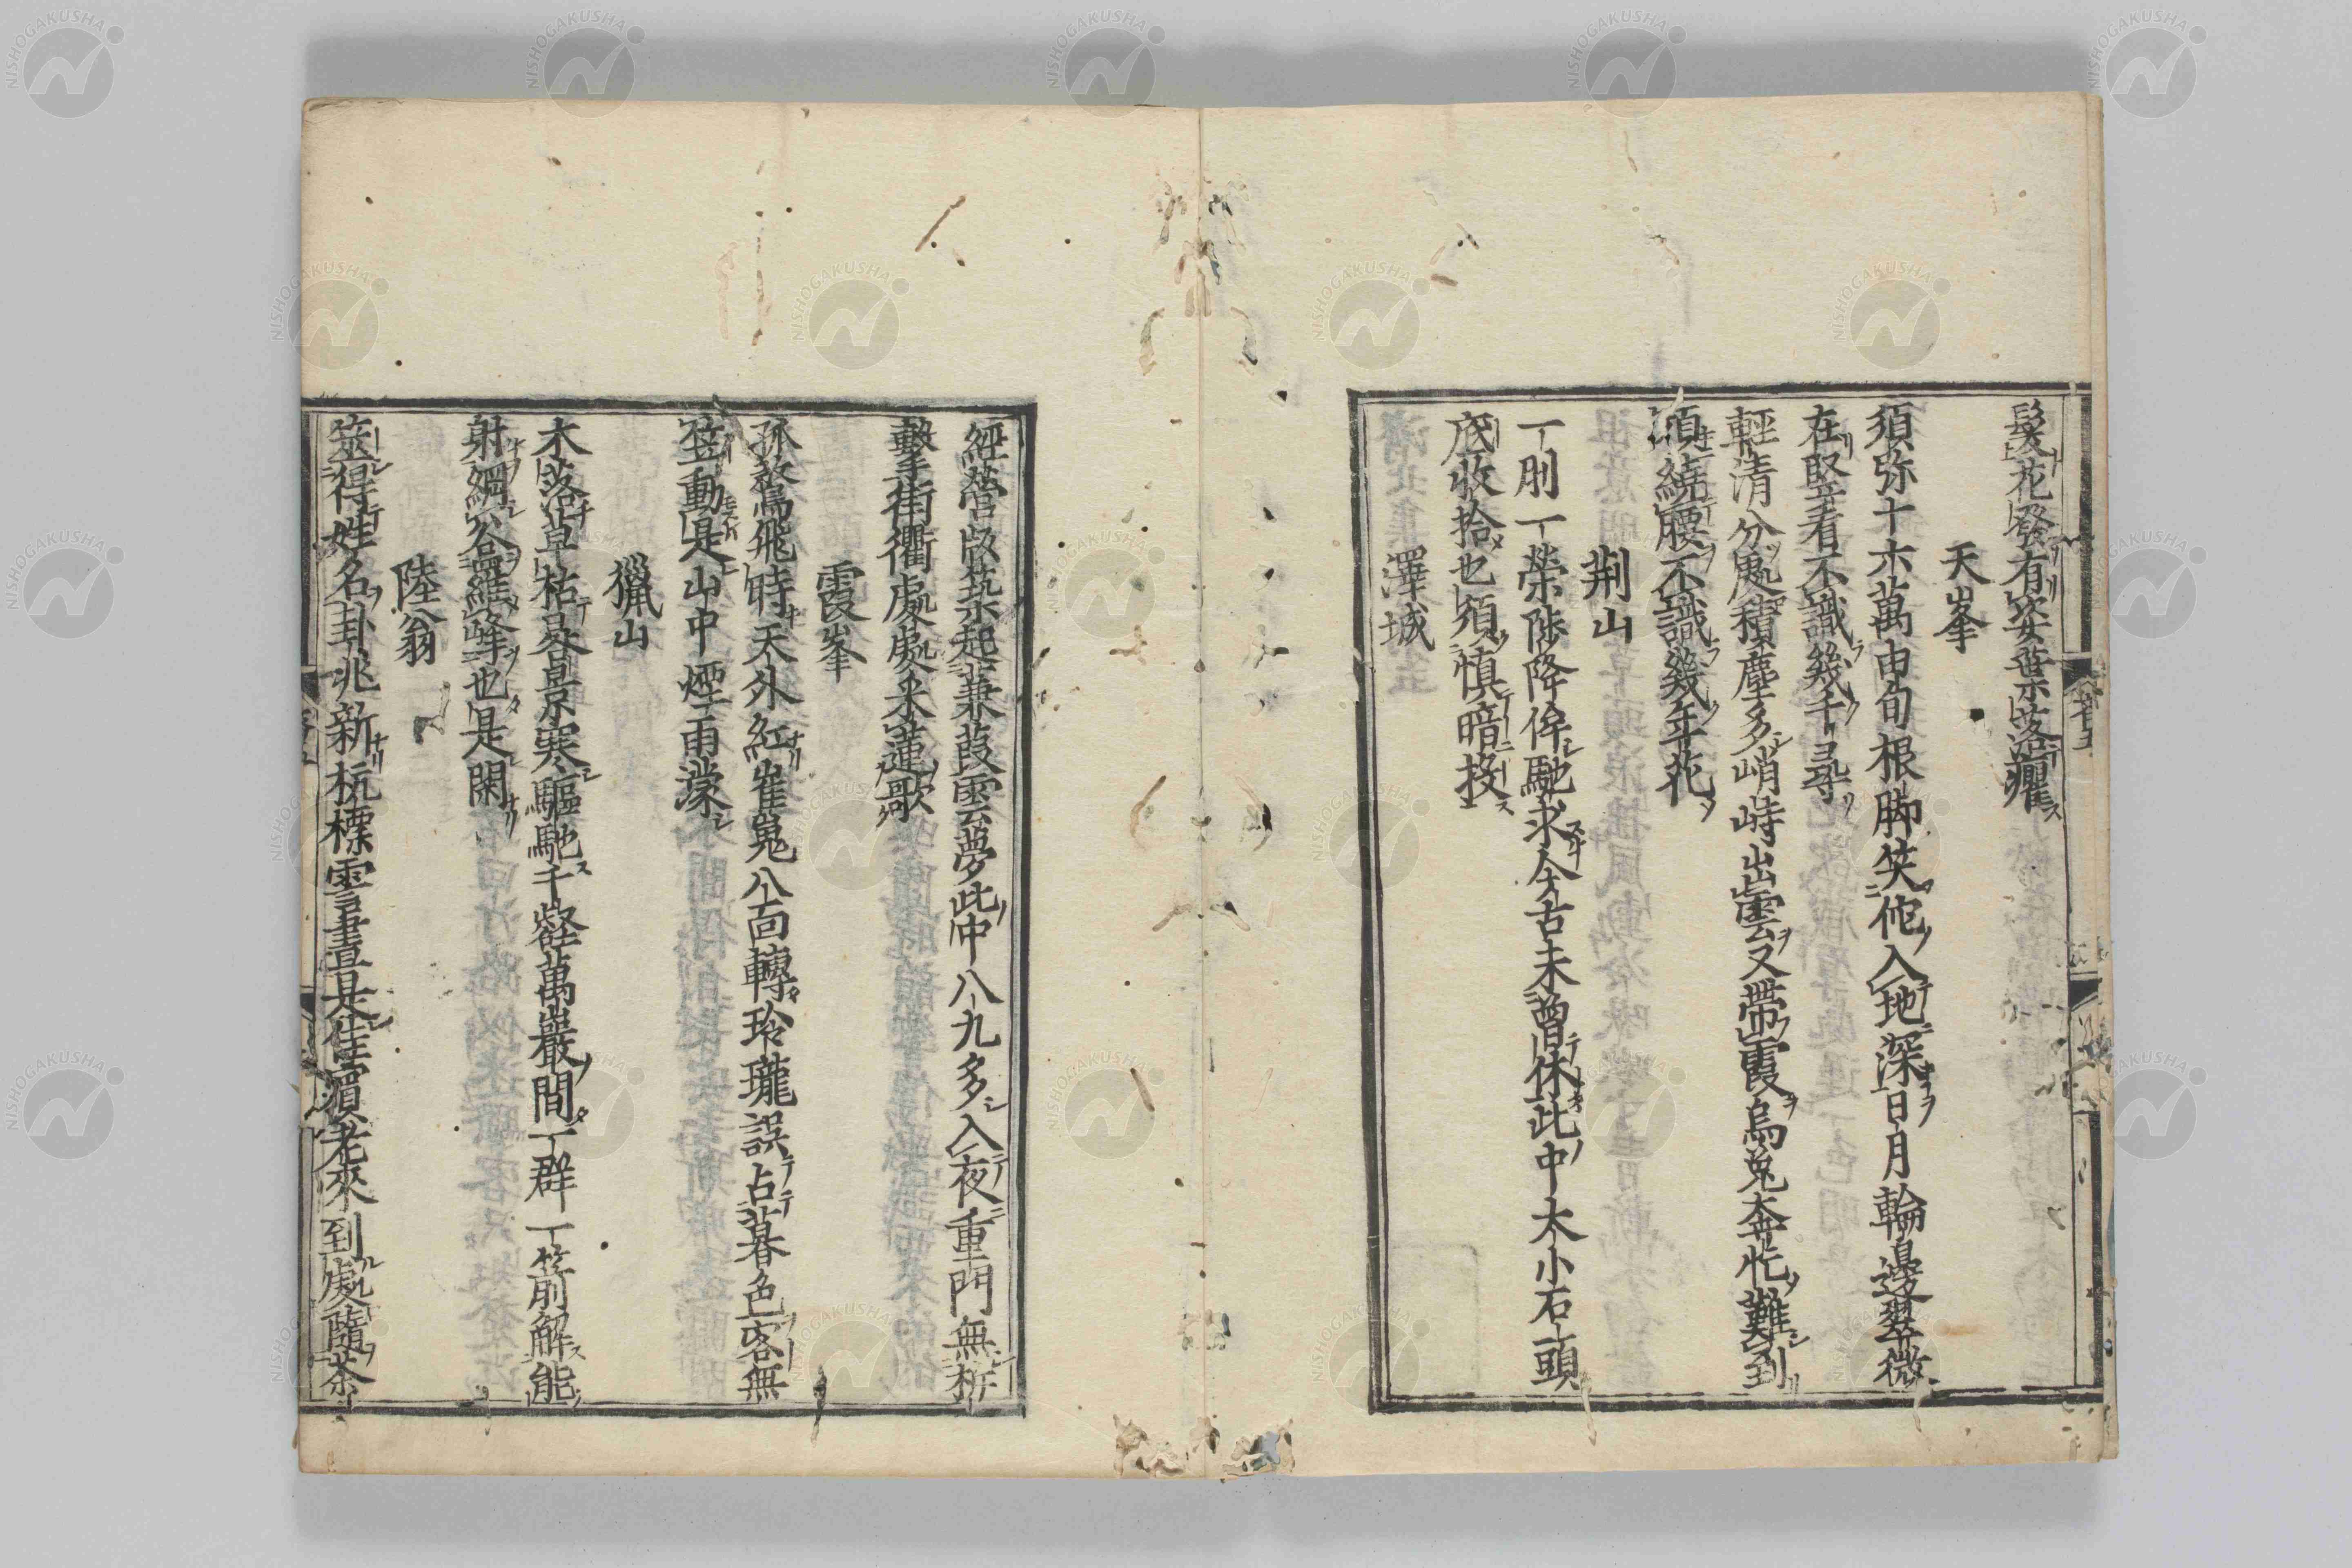 髮花發有安葉落癯
天峯
須弥十六萬由旬根脚笑他入地深日月輪邊翠微
在堅看不識幾千尋
輕清分處積塵多峭峙出雲又帶霞烏兎奔忙難到
頂繞腰不識幾年花
荆山
一刖一榮陟降侔馳求今古未曾休此中大小石頭
底收拾也須慎暗投
澤城
經營版築起蒹葭雲夢此中八九多入夜重門無柝
擊街衢處處采蓮歌
霞峯
孤鶩飛時天外紅崔嵬八面轉玲瓏誤占暮色客無
笻動是山中煙雨濛
獵山
木落草枯晷景寒驅馳千壑萬巖間一群一箭解能
射網盒羅峰也是閑
陸翁
筮得姓名卦兆新杭標雪畫是佳賓老來到處隨茶